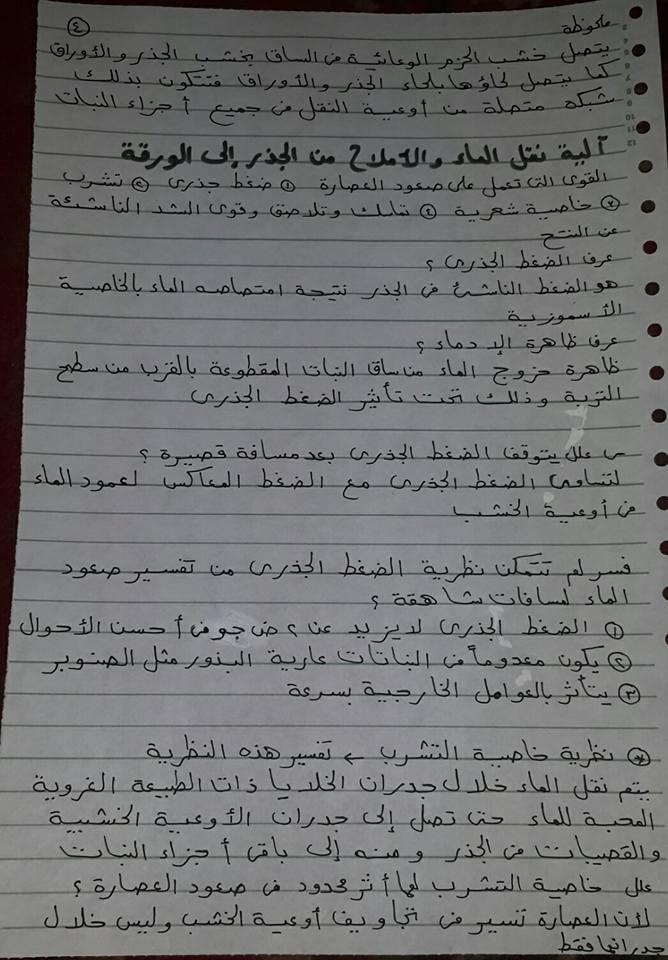 ④
ملحوظة
يتصل خشب الحزم الوعائية فى الساق بخشب الجذر والأوراق
كما يتصل لحاؤها بلحاء الجذر والأوراق فتتكون بذلك
شبكه متصلة من أوعية النقل فى جميع أجزاء النبات
آلية نقل الماء والأملاح من الجذر إلى الورقة
القوى التى تعمل على صعود العصارة ① ضغط جذرى ② تشرب
③ خاصية شعرية ④ تماسك وتلاصق وقوى الشد الناشئة
عن النتح
عرف الضغط الجذرى ؟
هو الضغط الناشئ فى الجذر نتيجة امتصاصه الماء بالخاصية
الأسموزية
عرف ظاهرة الإدماء ؟
ظاهرة خروج الماء من ساق النبات المقطوعة بالقرب من سطح
التربة وذلك تحت تأثير الضغط الجذرى
س علل يتوقف الضغط الجذرى بعد مسافة قصيرة ؟
لتساوى الضغط الجذرى مع الضغط المعاكس لعمود الماء
فى أوعية الخشب
فسر لم تتمكن نظرية الضغط الجذرى من تفسير صعود
الماء لمسافات شاهقة ؟
① الضغط الجذرى لا يزيد عن ٢ ض جو فى أحسن الأحوال
② يكون معدوماً فى النباتات عارية البذور مثل الصنوبر
③ يتأثر بالعوامل الخارجية بسرعة
نظرية خاصية التشرب ← تفسير هذه النظرية
يتم نقل الماء خلال جدران الخلايا ذات الطبيعة الغروية
المحبة للماء حتى تصل إلى جدران الأوعية الخشبية
والقصيبات فى الجذر ومنه إلى باقى أجزاء النبات
علل خاصية التشرب لها أثر محدود فى صعود العصارة ؟
لأن العصارة تسير فى تجاويف أوعية الخشب وليس خلال
جدرانها فقط